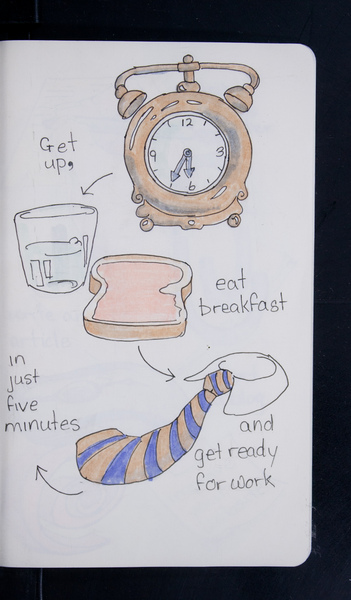 12
9
3
6
Get
up,
eat
breakfast
and
get ready
for work
in
just
five
minutes